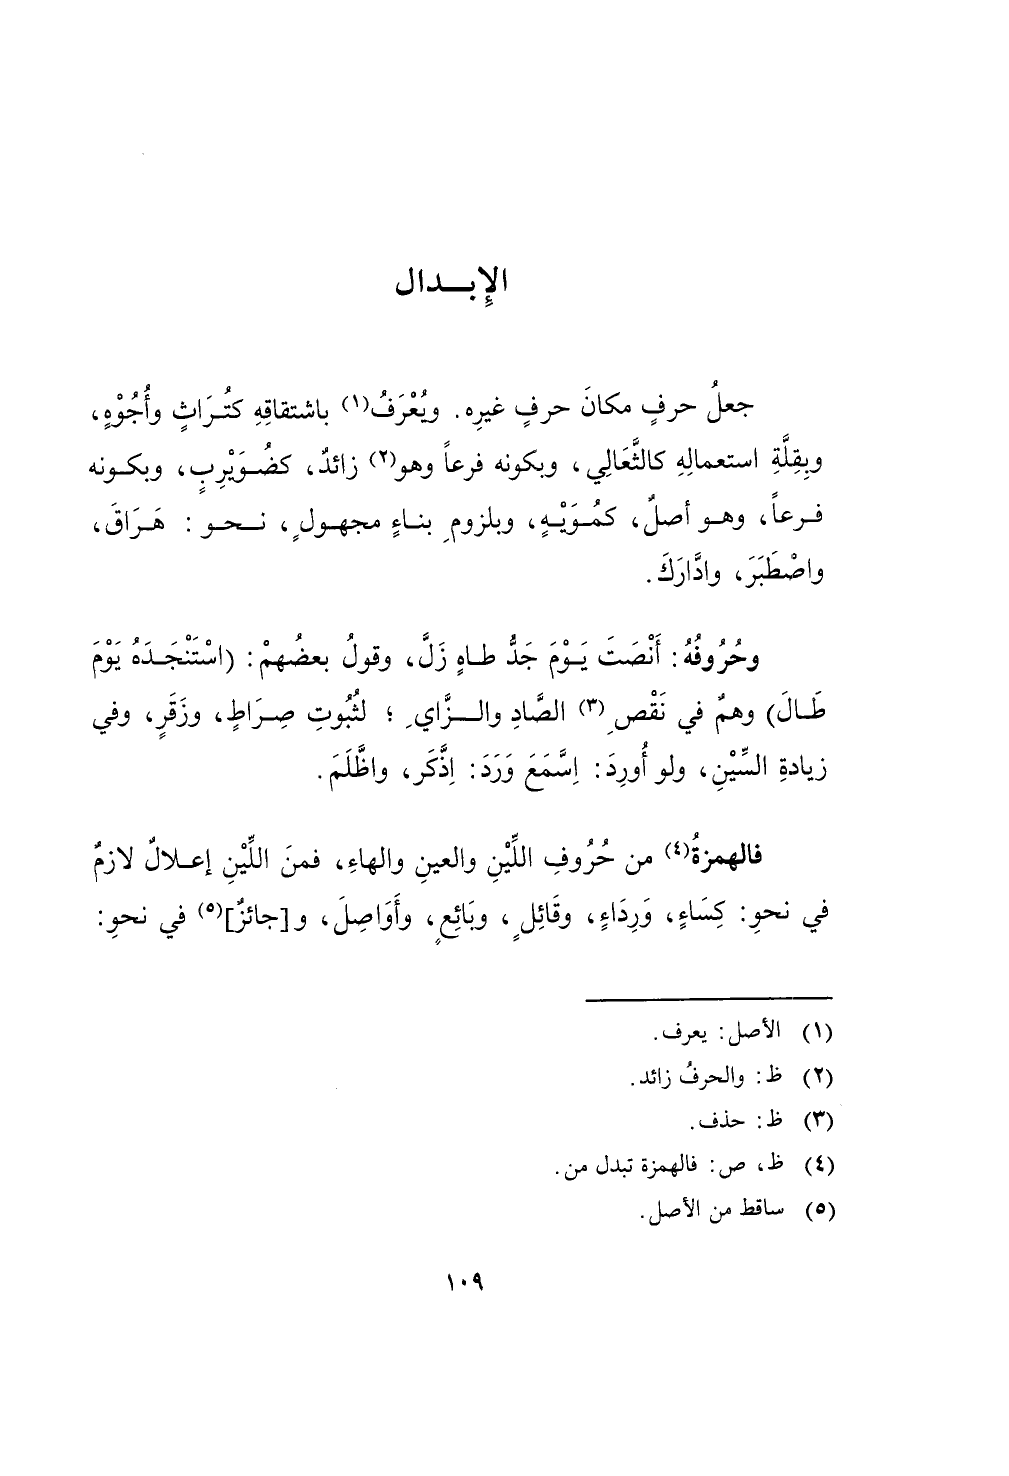 الإبـــدال
جعلُ حرفٍ مكانَ حرفٍ غيرِه. ويُعْرَفُ(١) باشتقاقِهِ كتُـرَاثٍ وأُجُوْهٍ،
وبِقِلَّةِ استعمالِهِ كالثَّعَالِي، وبكونه فرعاً وهو(٢) زائدٌ، كضُـوَيْرِبٍ، وبكـونه
فـرعاً، وهـو أصلٌ، كمُـوَيْـهٍ، وبلزومِ بنـاءٍ مجهـولٍ، نـحـو : هَـرَاقَ،
واصْطَبَرَ، وادَّارَكَ.
وحُرُوفُهُ: أَنْصَتَ يَـوْمَ جَدُّ طـاهٍ زَلَّ، وقولُ بعضُهمْ: (اسْتَنْجَـدَهُ يَوْمَ
طَـالَ) وهمٌ في نَقْصِ(٣) الصَّادِ والـزَّايِ ؛ لثُبُوتِ صِـرَاطٍ، وزَقَرٍ، وفي
زيادةِ السِّيْنِ، ولو أُورِدَ: اِسَّمَعَ وَرَدَ: اِذَّكَر، واظَّلَمَ.
فالهمزةُ(٤) من حُرُوفِ اللِّيْنِ والعينِ والهاءِ، فمنَ اللِّيْنِ إعـلالٌ لازمٌ
في نحوِ: كِسَاءٍ، وَرِدَاءٍ، وقَائِلٍ، وبَائِعٍ، وأَوَاصِلَ، و[جائزٌ](٥) في نحوِ:
(١) الأصل: يعرف.
(٢) ظ: والحرفُ زائد.
(٣) ظ: حذف.
(٤) ظ، ص: فالهمزة تبدل من.
(٥) ساقط من الأصل.
١٠٩